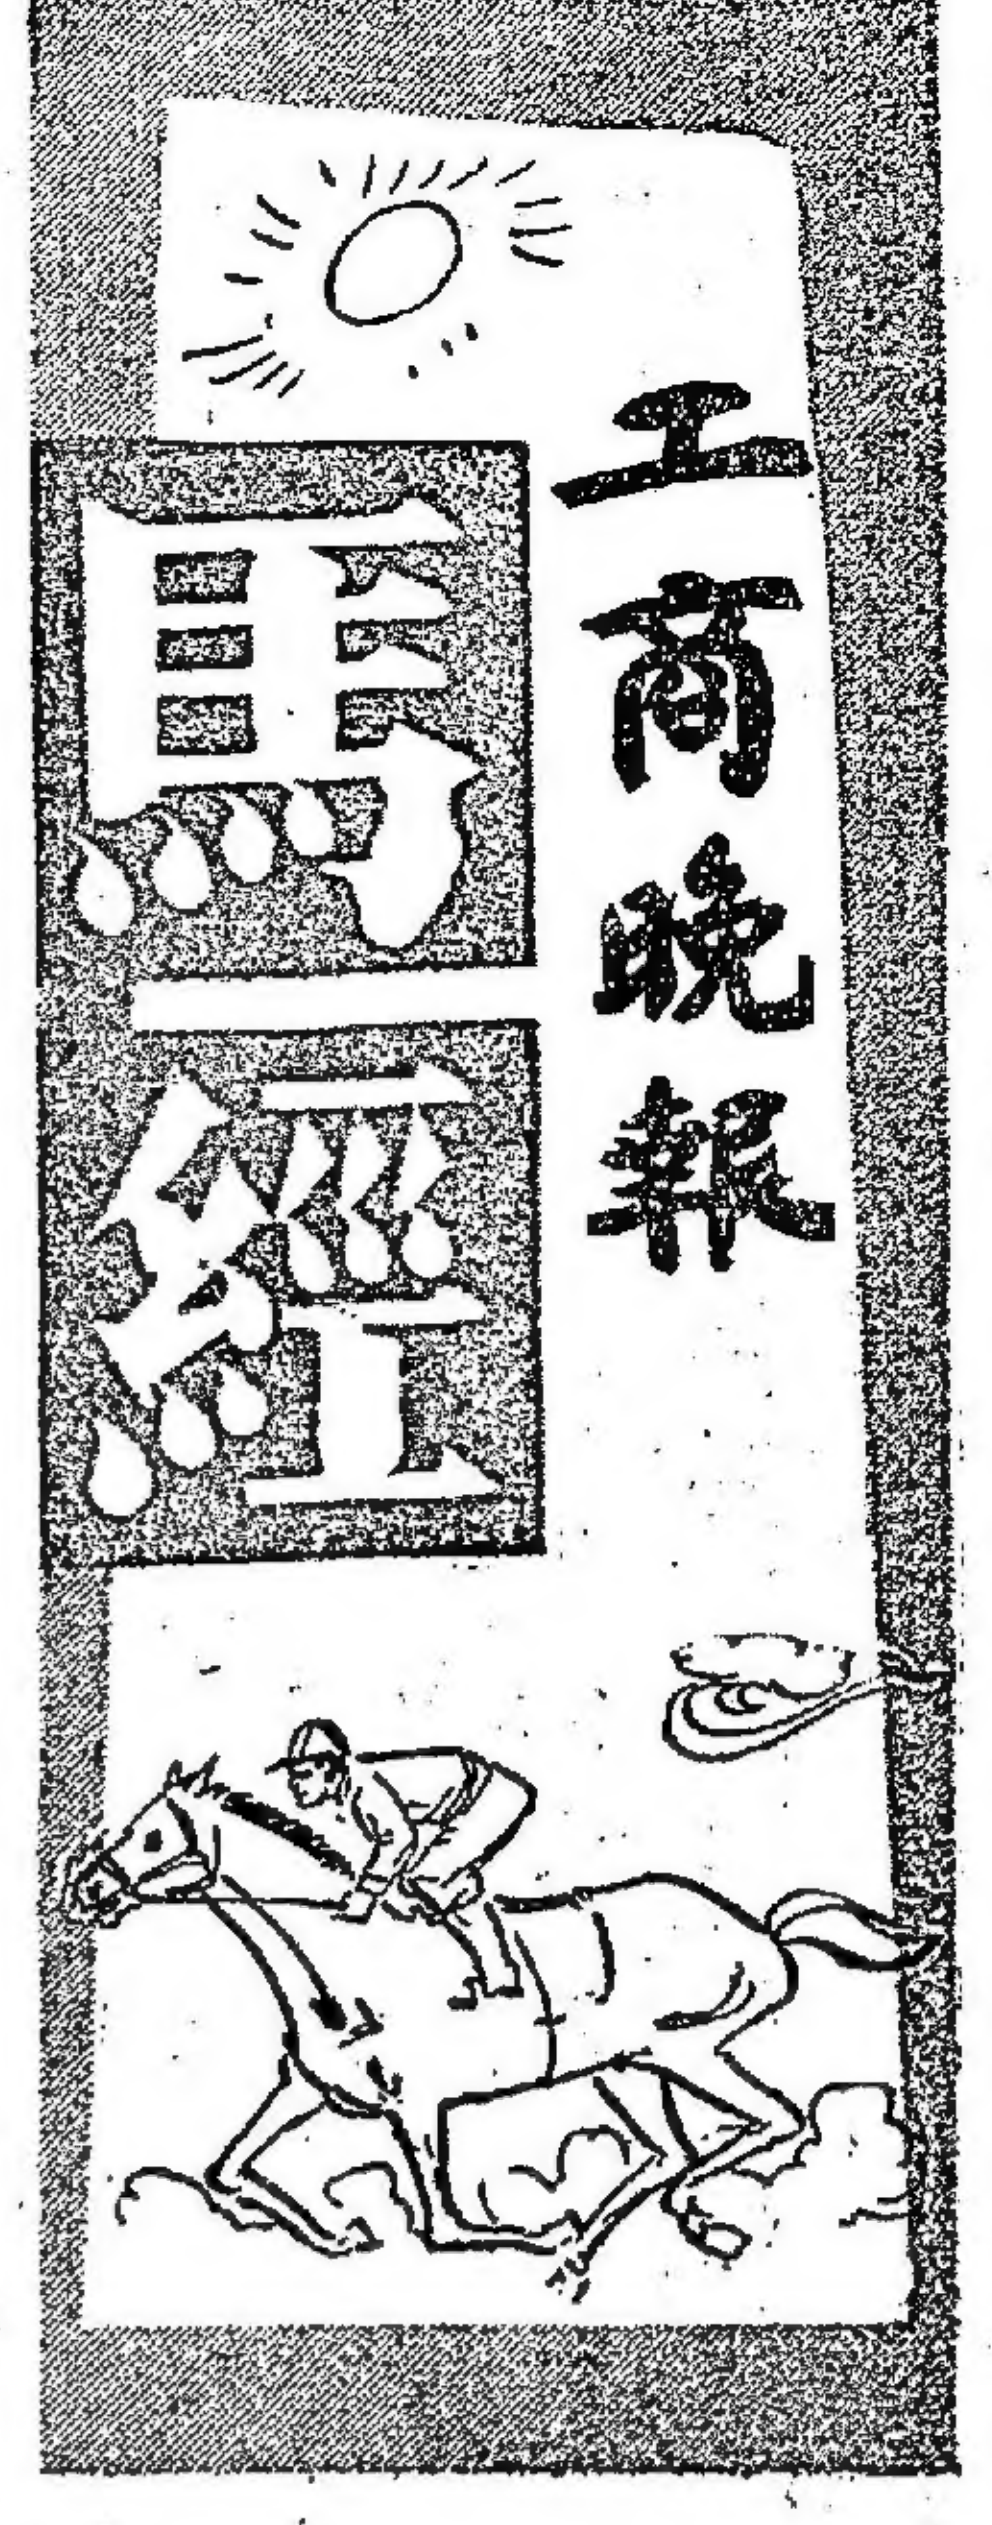 工商晚報
馬經